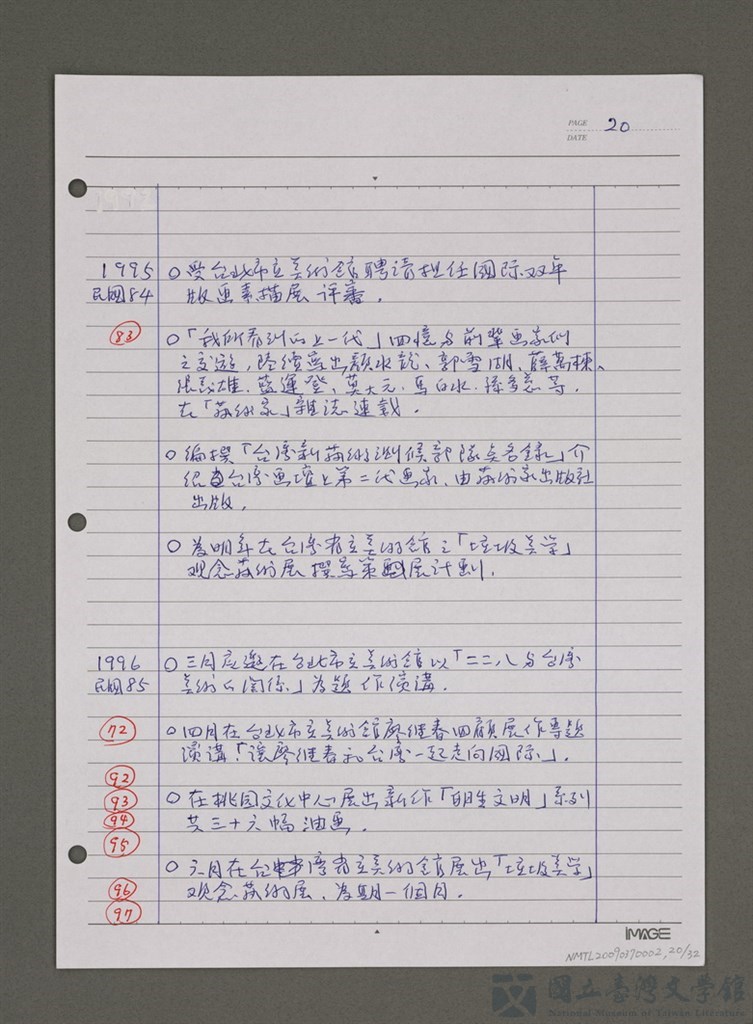 PAGE 20
DATE
1995 ○受台北市立美術館聘請担任國际双年
民國84 版画素描展評審.
83 ○「我所看到的上一代」回憶与前輩画家们
之交遊,陸續登出顏水龍、郭雪湖、薛萬棟、
張義雄.藍運登、莫大元.馬白水.孫多慈等.
在「芸術家」雜誌連載.
○編撰「台湾新芸術測候部隊点名錄」介
紹台湾画壇上第二代画家、由芸術家出版社
出版.
○為明年在台湾省立美術館之「垃圾美学」
观念芸術展撰寫策展計劃.
1996 ○三月应邀在台北市立美術館以「二二八与台湾
民國85 美術的関係」為題作演講.
72 ○四月在台北市立美術館廖继春回顧展作專題
演講「讓廖继春和台湾一起走向國际」.
92
93 ○在桃园文化中心展出新作「明生文明」系列
94 共三十六幅油画.
95
○六月在台湾省立美術館展出「垃圾美学」
96 观念芸術展、為期一個月.
97
IMAGE
NMTL20090370002,20/32
國立臺灣文學館
National Museum of Taiwan Literature